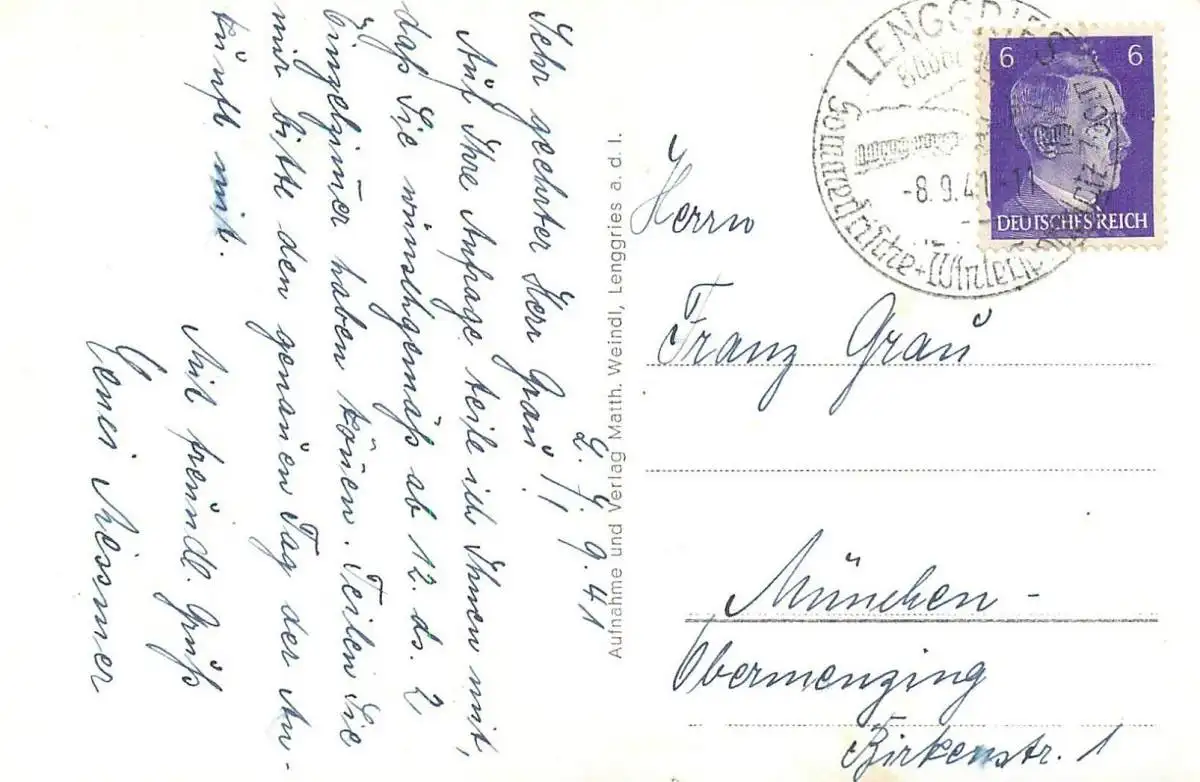 L. 7. 9. 41
Sehr geehrter Herr Grau!
Auf Ihre Anfrage teile ich Ihnen mit,
daß Sie wunschgemäß ab 12. ds. 2
Einzelzimer haben könen. Teilen Sie
mir bitte den genauen Tag der An-
kunft mit.
Mit freundl. Gruß
Messmer
Aufnahme und Verlag Matth. Weindl, Lenggries a. d. I.
LENGGRIES
-8.9.41.-11
Sommerfrische + Winter
6 6
DEUTSCHES REICH
Herrn
Franz Grau
München -
Obermenzing
Birkenstr. 1